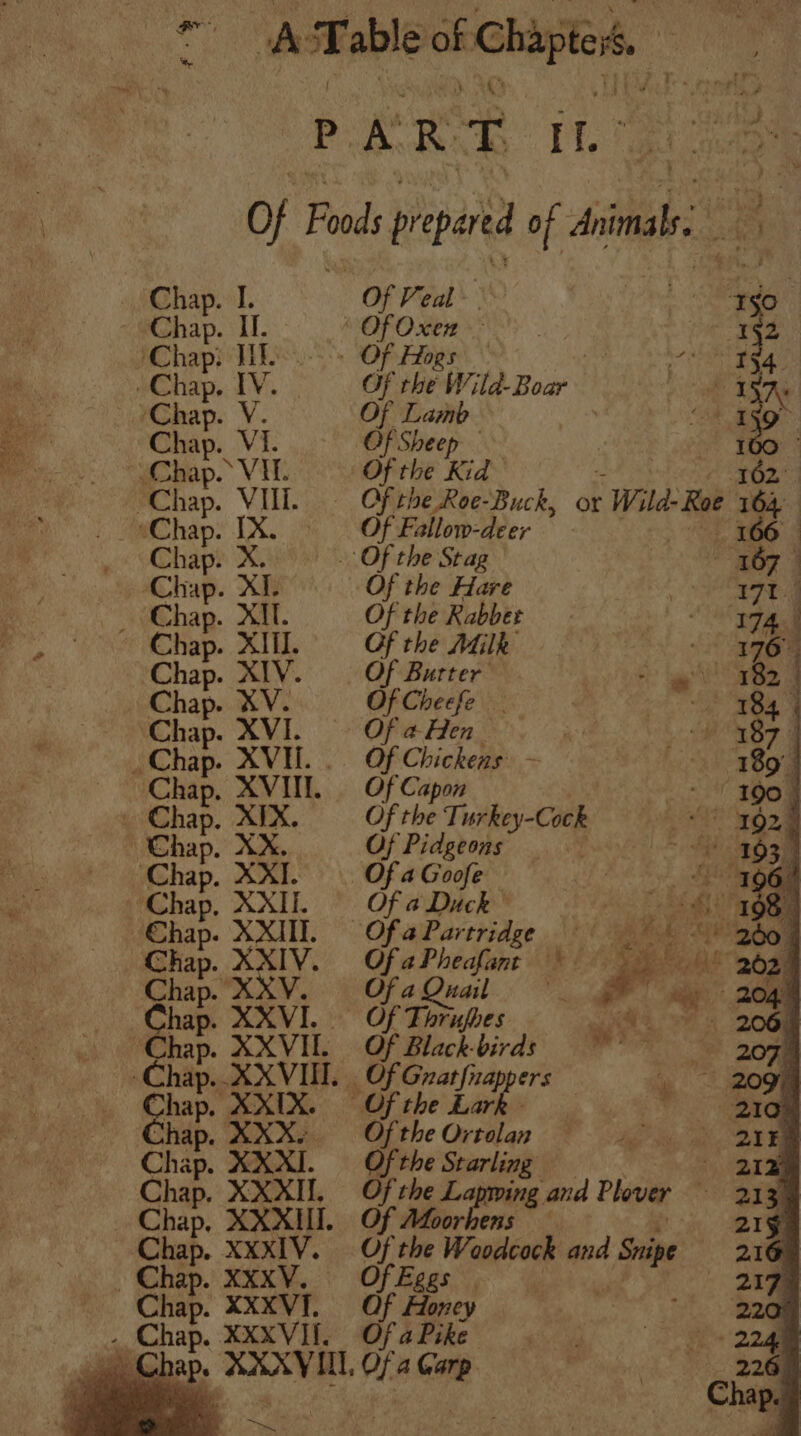 A Table of Chapters.
PART II.
Of Foods prepared of Animals.
Chap. I. Of Veal 150
Chap. II. Of Oxen 152
Chap. III. Of Hogs 154
Chap. IV. Of the Wild-Boar 157
Chap. V. Of Lamb 159
Chap. VI. Of Sheep 160
Chap. VII. Of the Kid 162
Chap. VIII. Of the Roe-Buck, or Wild-Roe 164
Chap. IX. Of Fallow-deer 166
Chap. X. Of the Stag 167
Chap. XI. Of the Hare 171
Chap. XII. Of the Rabbet 174
Chap. XIII. Of the Milk 176
Chap. XIV. Of Butter 182
Chap. XV. Of Cheeſe 184
Chap. XVI. Of a Hen 187
Chap. XVII. Of Chickens 189
Chap. XVIII. Of Capon 190
Chap. XIX. Of the Turkey-Cock 192
Chap. XX. Of Pidgeons 193
Chap. XXI. Of a Gooſe 196
Chap. XXII. Of a Duck 198
Chap. XXIII. Of a Partridge 200
Chap. XXIV. Of a Pheaſant 202
Chap. XXV. Of a Quail 204
Chap. XXVI. Of Thruſhes 206
Chap. XXVII. Of Black-birds 207
Chap. XXVIII. Of Gnatſnappers 209
Chap. XXIX. Of the Lark 210
Chap. XXX. Of the Ortolan 211
Chap. XXXI. Of the Starling 212
Chap. XXXII. Of the Lapwing and Plover 213
Chap. XXXIII. Of Moorhens 215
Chap. XXXIV. Of the Woodcock and Snipe 216
Chap. XXXV. Of Eggs 217
Chap. XXXVI. Of Honey 220
Chap. XXXVII. Of a Pike 224
Chap. XXXVIII. Of a Carp 226
Chap.